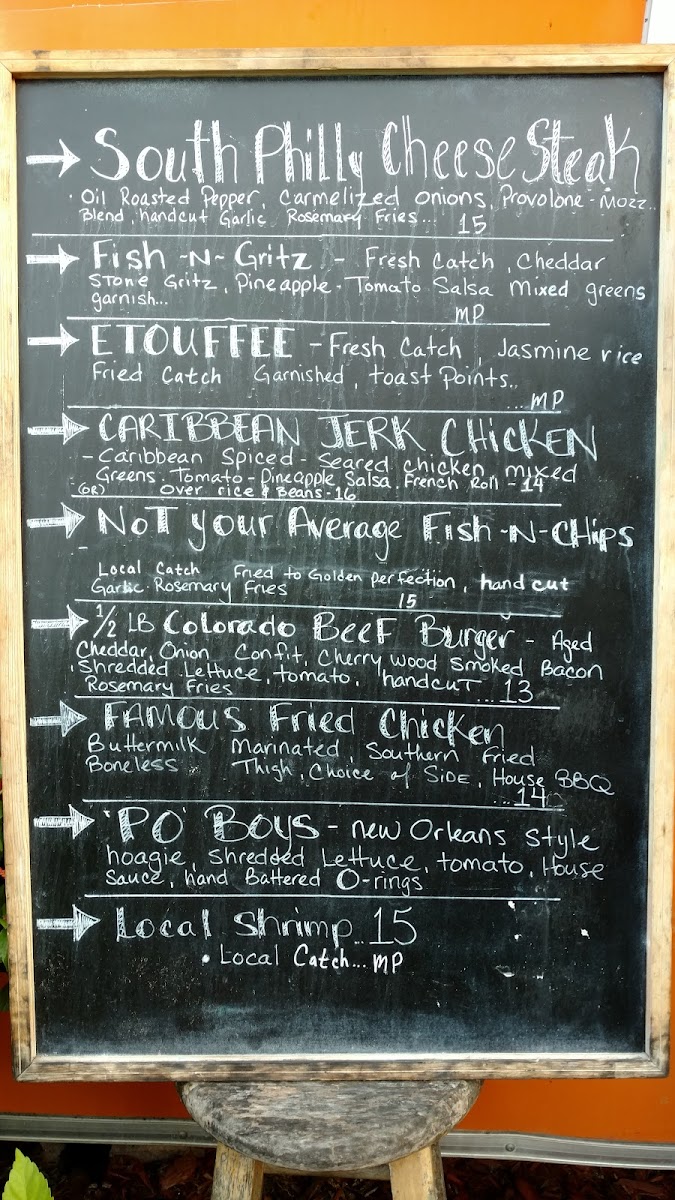 South Philly Cheese Steak
· Oil Roasted Pepper, Carmelized onions, Provolone - Mozz..
Blend, handcut Garlic Rosemary Fries... 15
Fish -N- Gritz - Fresh Catch, Cheddar
Stone Gritz, Pineapple - Tomato Salsa mixed greens
garnish...
MP
ETOUFFEE - Fresh Catch, Jasmine rice
Fried Catch Garnished, toast Points..
...MP
CARIBBEAN JERK CHICKEN
- Caribbean Spiced - Seared chicken, mixed
Greens. Tomato - Pineapple Salsa. French Roll - 14
(OR) Over rice & Beans - 16
NoT your Average Fish-N-Chips
Local Catch Fried to Golden perfection, hand cut
Garlic - Rosemary Fries
15
1/2 LB Colorado Beef Burger - Aged
Cheddar, Onion Confit, Cherry wood Smoked Bacon
, Shredded Lettuce, tomato, handcut ... 13
Rosemary Fries
FAMOUS Fried Chicken
Buttermilk Marinated, Southern Fried
Boneless Thigh, Choice of Side, House BBQ
...14
'PO' BOYS - new Orleans Style
hoagie, Shredded Lettuce, tomato, House
Sauce, hand Battered O-rings
Local Shrimp...15
• Local Catch... MP